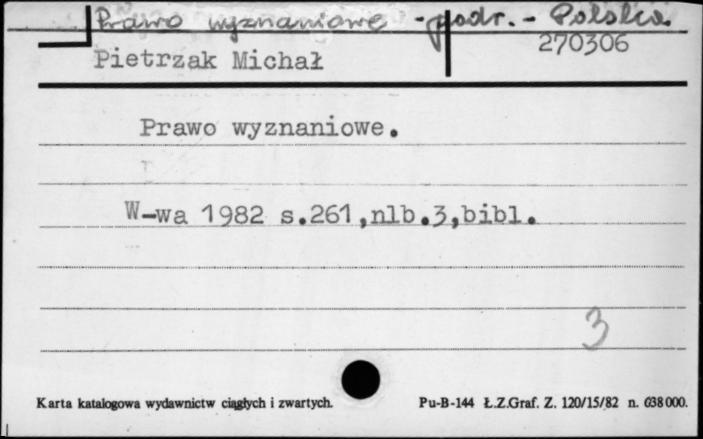 Prawo wyznaniowe - podr. - Polska
270306
Pietrzak Michał
Prawo wyznaniowe.
W-wa 1982 s.261,nlb.3,bibl.
3
Karta katalogowa wydawnictw ciągłych i zwartych. Pu-B-144 Ł.Z.Graf. Z. 120/15/82 n. 638000.